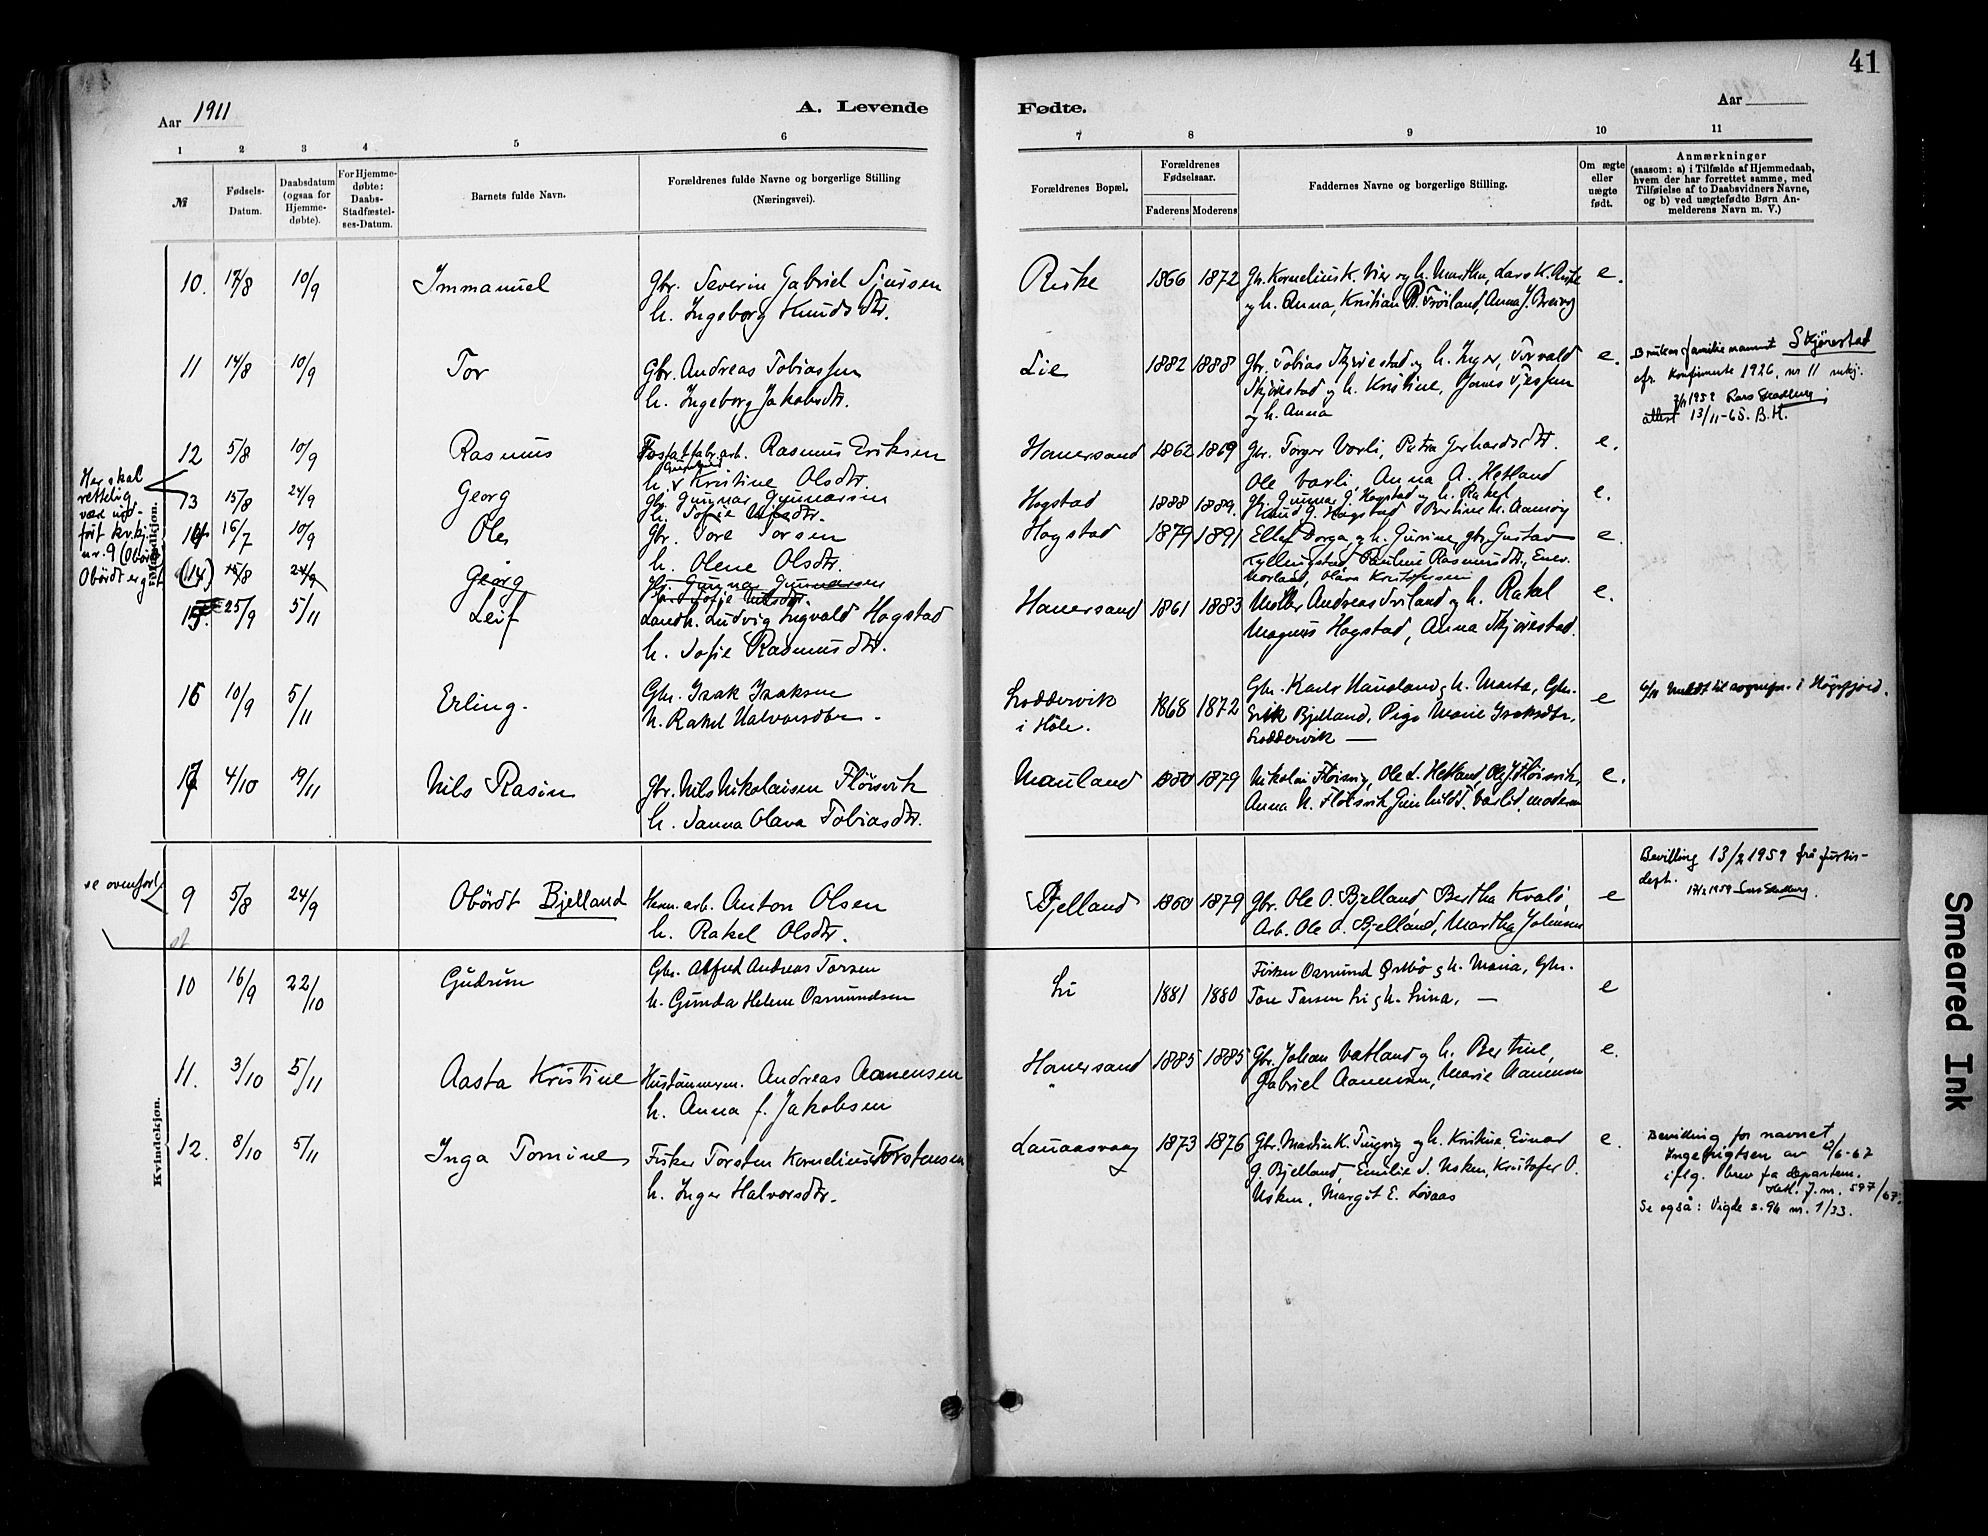 41
Aar 1911
A. Levende
Fødte.
Aar
1 2 3 4 5 6 7 8 9 10 11
№
Fødsels-
Datum.
Daabsdatum
(ogsaa for
Hjemme-
døbte).
For Hjemme-
døbte:
Daabs-
Stadfæstel-
ses-Datum.
Barnets fulde Navn.
Forældrenes fulde Navne og borgerlige Stilling
(Næringsvei).
Forældrenes Bopæl.
Forældrenes
Fødselsaar.
Faderens Moderens
Faddernes Navne og borgerlige Stilling.
Om ægte
eller
uægte
født.
Anmærkninger
(saasom: a) i Tilfælde af Hjemmedaab,
hvem der har forrettet samme, med
Tilføielse af to Daabsvidners Navne,
og b) ved uægtefødte Børn An-
melderens Navn m. V.)
10. 17/8 10/9 Immanuel Gbr. Severin Gabriel Sjursen
h. Ingeborg Knudsdtr.
Riske 1866 1872 Gbr. Kornelius K. Vier og h. Martha, Lars K. Riske
og h. Anna, Kristian R. Frøiland, Anna J. Breivig
e.
11 14/8 10/9 Tor Gbr. Andreas Tobiassen
h. Ingeborg Jakobsdtr.
Lie 1882 1888 Gbr. Tobias Skjørestad og h. Inger, Torvald
Skjørestad og h. Kristine, Tjessem
og h. Anna
e.
Bruker familienavnet Skjørestad
cfr. Konfirmerte 1926, nr 11 mkj.
1959 Lars Skadberg
attest 13/11-65. B.H.
12 5/8 10/9 Rasmus arb. Rasmus Eriksen
h. Kristine Olsdtr.
Hanersand 1862 1869 Gbr. Torger Varli, Petra Gerhardsdtr.
Ole Varli, Anna A. Hetland
e.
Her skal
rettelig
være ind-
ført kv.kj.
nr. 9 (Obørdt
Obørdt er gut
Mandkjøn.
13 15/8 24/9 Georg Gbr. Gunnar Gunnarsen
h. Sofie Nilsdtr.
Hogstad 1888 1889. Gbr. Gunnar G. Hogstad og h. Rakel
Knud G. Hogstad Bertine M. Aamøy
e.
14 16/7 10/9 Ole Gbr. Tore Torsen
h. Olene Olsdtr.
Hogstad 1879 1891 Dorga og h. Gurine, gbr. Gustav
Tyllingstad, Pauline Rasmusdtr.,
Norland, Olava Kristofersen
e.
(14) 15/8 24/9 Georg Gbr. Gunnar Gunnarsen
h. Sofie Nilsdtr.
15. 25/9 5/11 Leif Landh. Ludvig Ingvald Hogstad
h. Sofie Rasmusdtr.
Hanersand 1861 1883 Møller Andreas Friland og h. Rakel
Magnus Hogstad, Anna Skjørestad.
e.
16 10/9 5/11 Erling. Gbr. Isak Isaksen
h. Rakel Halvorsdtr.
Loddervik
i Høle.
1868 1872 Gbr. Karls Haualand og h. Marta, Gbr.
Erik Bjelland, Pige Marie Isaksdtr.
Loddervik —
e
6/11 meldt til sognepr. i Høgsfjord.
17 4/10 19/11 Nils Rasin Gbr. Nils Nikolaisen Fløisvik
h. Janna Olava Tobiasdtr.
Mauland 1880 1879 Nikolai Fløisvig, Ole L. Hetland, Ole J. Fløisvik,
Anna N. Fløisvik, Gunhild T. Varlid, moderen
e.
se ovenfor!
9 5/8 24/9 Obørdt Bjelland arb. Anton Olsen
h. Rakel Olsdtr.
Bjelland 1860 1879 Gbr. Ole O. Bjelland Bertha Kvalø,
Arb. Ole A. Bjelland, Martha Johnsen
e
Bevilling 13/2 1959 frå justis-
dept.
17/2 1959 Lars Skadberg.
10 16/9 22/10 Gudrun Gbr. Alfred Andreas Torsen
h. Gunda Helene Osmundsen
Li 1881 1880 Fisker Osmund Ørebø og h. Maria, Gbr.
Tore Torsen Li og h. Lina. —
e
11. 3/10 5/11 Aasta Kristine Hustømmerm. Andreas Aanensen
h. Anna f. Jakobsen
Hanersand 1885 1885 Gbr. Johan Vatland og h. Bertine,
Gabriel Aanensen, Marie Aanensen
e.
Kvindekjøn.
12. 8/10 5/11 Inga Tomine Fisker Torsten Kornelius Torstensen
h. Inger Halvorsdtr.
Lauaasvaag 1873 1876 Gbr. Martin K. Tingvig og h. Kristine Einar
G. Bjelland, Emilie S. Usken, Kristofer O.
Usken, Margit E. Løvaas
e.
Bevilling for navnet
Ingebrigtsen av 2/6-67
iflg. brev fra departem.
J.nr. 597/67.
Se også: Vigde s. 94 nr. 1/33.
Smeared Ink